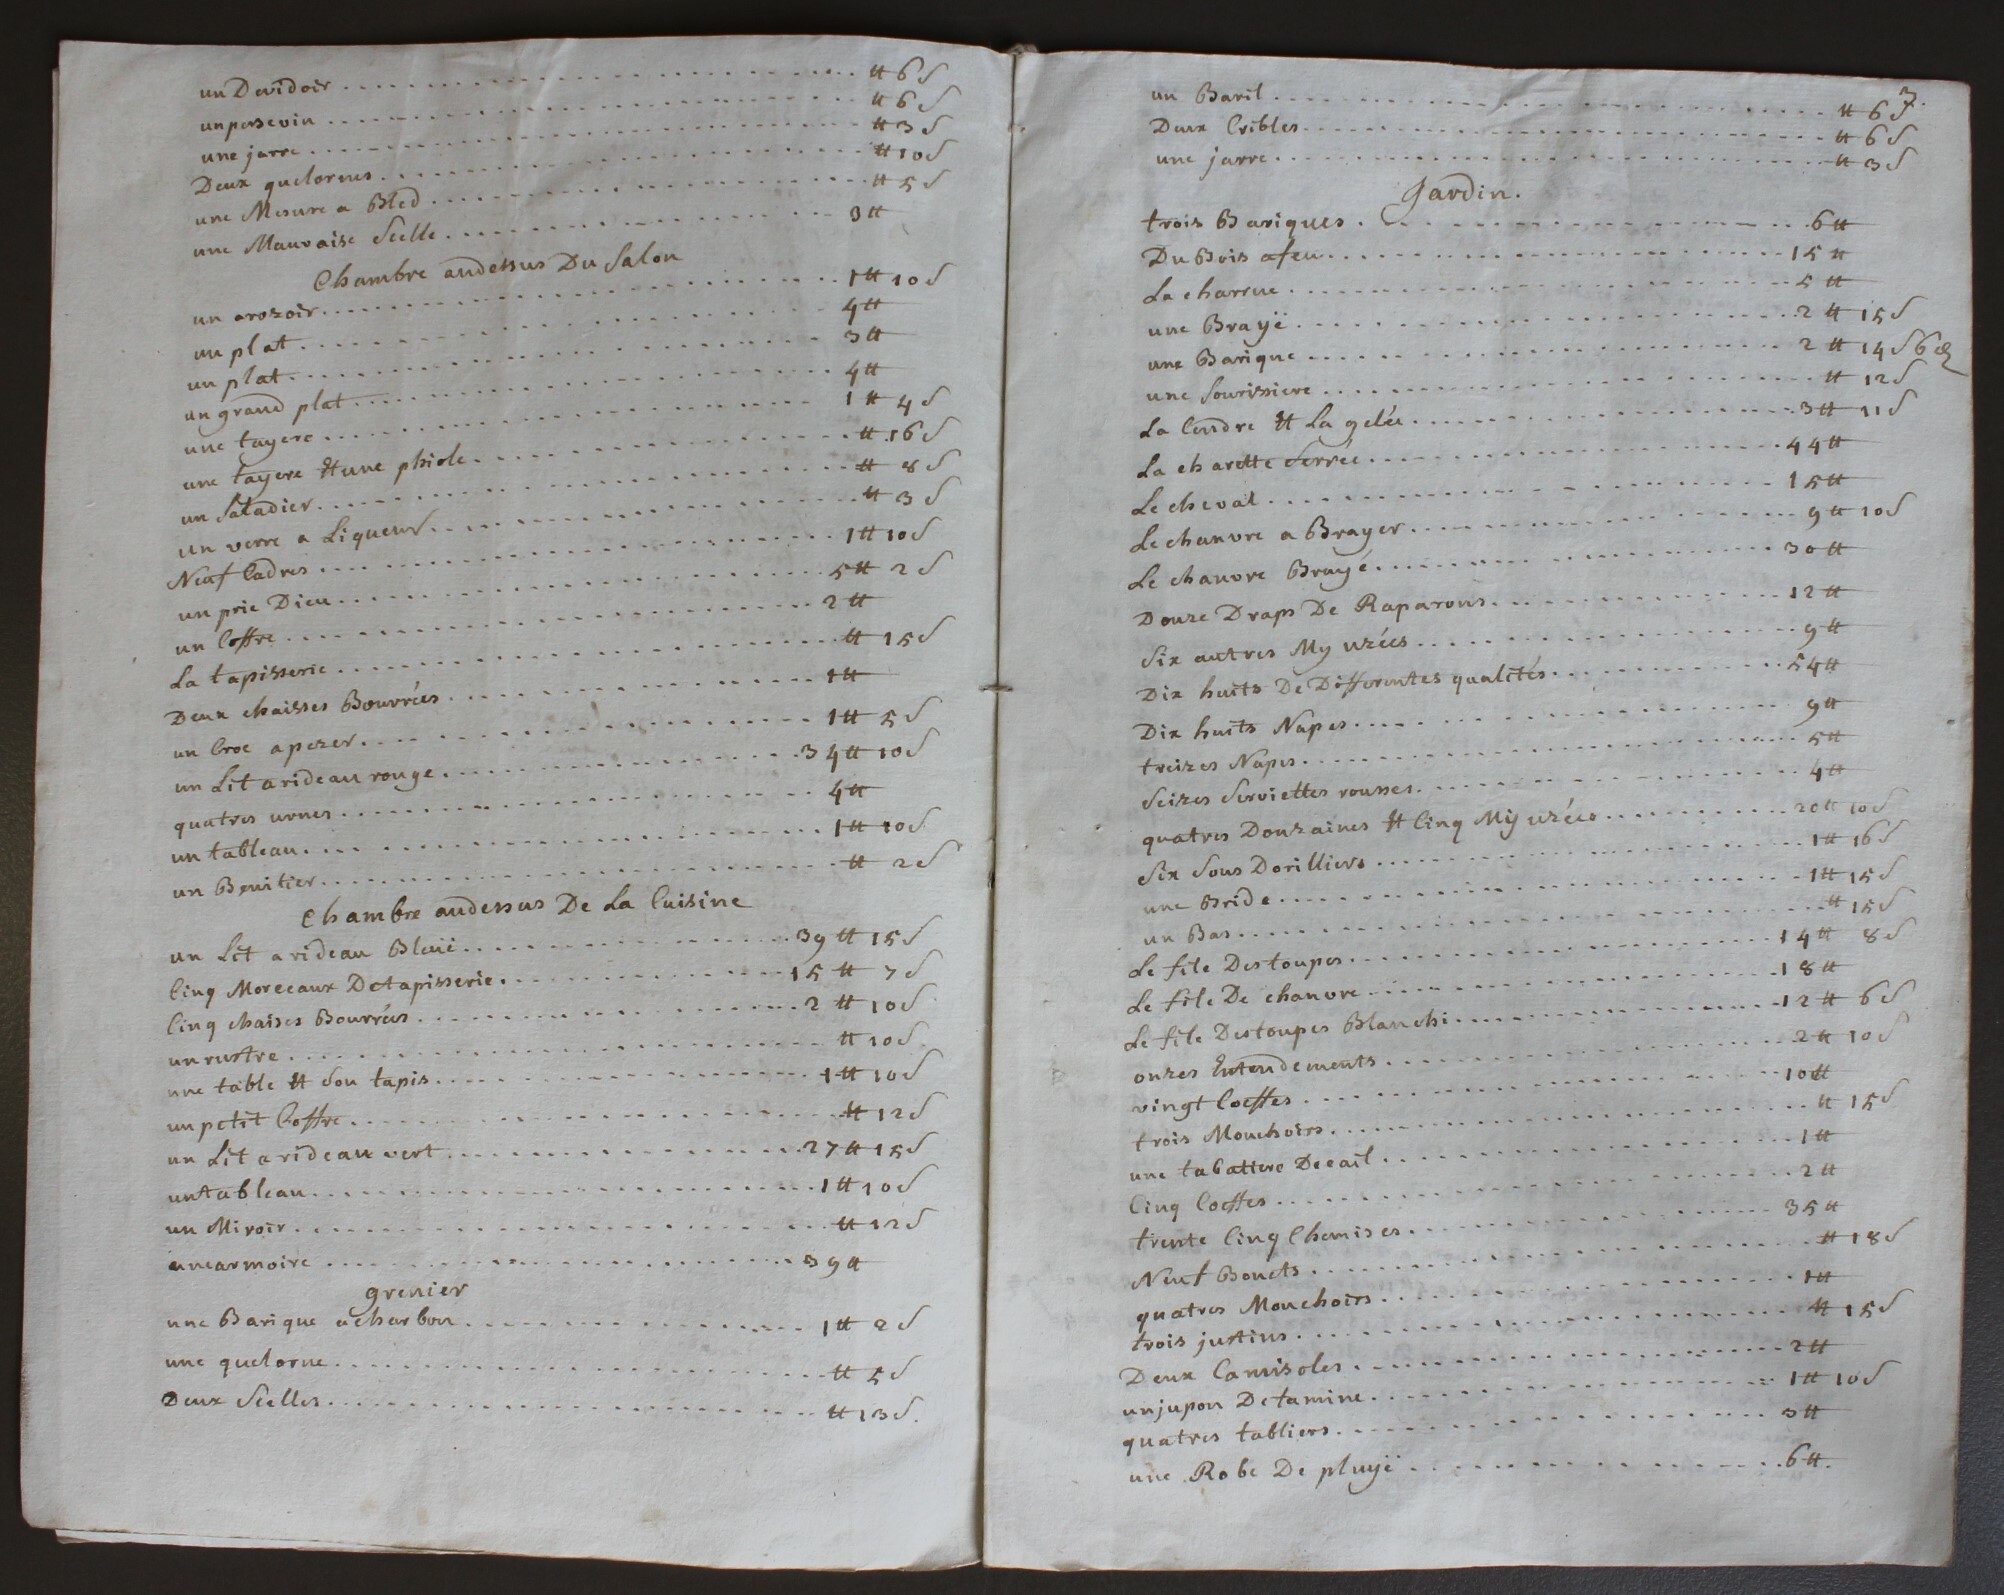 un Devidoir . . . . . ₶ 6 S
un persevin . . . . . ₶ 6 S
une jarre . . . . . ₶ 3 S
Deux quelornes . . . . . ₶ 10 S
une Mesure a Bled . . . . . ₶ 5 S
une Mauvaise Selle . . . . . 3 ₶
Chambre audessus Du Salon
un arozoir . . . . . 1 ₶ 10 S
un plat . . . . . 4 ₶
un plat . . . . . 3 ₶
un grand plat . . . . . 4 ₶
une tayere . . . . . 1 ₶ 4 S
une tayere Et une phiole . . . . . ₶ 16 S
un Saladier . . . . . ₶ 8 S
un verre a Liqueur . . . . . ₶ 3 S
Neuf Cadres . . . . . 1 ₶ 10 S
un prie Dieu . . . . . 5 ₶ 2 S
un Coffre . . . . . 2 ₶
La tapisserie . . . . . ₶ 15 S
Deux chaisses Bourrées . . . . . 1 ₶
un Croc a pezer . . . . . 1 ₶ 5 S
un Lit a rideau rouge . . . . . 34 ₶ 10 S
quatres urnes . . . . . 4 ₶
un tableau . . . . . 1 ₶ 10 S
un Benitier . . . . . ₶ 2 S
Chambre audessus De La Cuisine
un Lit a rideau Bleuë . . . . . 39 ₶ 15 S
Cinq Morceaux De tapisserie . . . . . 15 ₶ 7 S
Cinq chaises Bourrées . . . . . 2 ₶ 10 S
un rustre . . . . . ₶ 10 S
une table Et Son tapis . . . . . 1 ₶ 10 S
un petit Coffre . . . . . ₶ 12 S
un Lit a rideau vert . . . . . 27 ₶ 15 S
un tableau . . . . . 1 ₶ 10 S
un Miroir . . . . . ₶ 12 S
une armoire . . . . . 39 ₶
grenier
une Barique a charbon . . . . . 1 ₶ 2 S
une quelorne . . . . . ₶ 5 S
Deux Selles . . . . . ₶ 13 S.
3.
un Baril . . . . . ₶ 6 S
Deux Cribles . . . . . ₶ 6 S
une jarre . . . . . ₶ 3 S
Jardin.
trois Bariques . . . . . 6 ₶
Du Bois a feu . . . . . 15 ₶
La charrue . . . . . 5 ₶
une Brayë . . . . . 2 ₶ 15 S
une Barique . . . . . 2 ₶ 14 S 6 d
une Sourissiere . . . . . ₶ 12 S
La Cendre Et La gelée . . . . . 3 ₶ 11 S
La charette ferrée . . . . . 44 ₶
Le cheval . . . . . 15 ₶
Le chanvre a Brayer . . . . . 9 ₶ 10 S
Le chanvre Brayé . . . . . 30 ₶
Douze Draps De Raparons . . . . . 12 ₶
Six autres My uzées . . . . . 9 ₶
Dix huits De Differentes qualités . . . . . 54 ₶
Dix huits Napes . . . . . 9 ₶
treizes Napes . . . . . 5 ₶
Seizes Serviettes rousses . . . . . 4 ₶
quatres Douzaines Et Cinq My uzées . . . . . 20 ₶ 10 S
Six Sous Dorilliers . . . . . 1 ₶ 16 S
une Bride . . . . . 1 ₶ 15 S
un Bas . . . . . ₶ 15 S
Le file Destoupes . . . . . 14 ₶ 8 S
Le file De chanvre . . . . . 18 ₶
Le file Destoupes Blanchi . . . . . 12 ₶ 6 S
onzes Entendements . . . . . 2 ₶ 10 S
vingt Coeffes . . . . . 10 ₶
trois Mouchoirs . . . . . ₶ 15 S
une tabattiere Decail . . . . . 1 ₶
Cinq Coeffes . . . . . 2 ₶
trente Cinq Chemises . . . . . 35 ₶
Neuf Bonets . . . . . ₶ 18 S
quatres Mouchoirs . . . . . 1 ₶
trois justins . . . . . ₶ 15 S
Deux Camisoles . . . . . 2 ₶
un jupon Detamine . . . . . 1 ₶ 10 S
quatres tabliers . . . . . 3 ₶
une Robe De pluyë . . . . . 6 ₶.